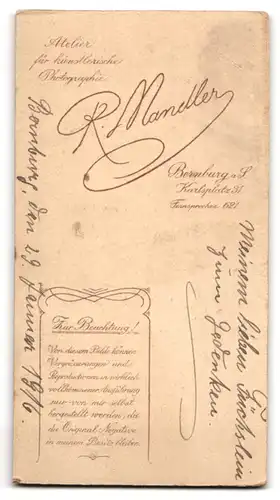 Atelier
für künstlerische
Photographie
R. Mandler
Bernburg a. S.
Karlsplatz 31
Fernsprecher 621
Zur Beachtung!
Von diesem Bilde können
Vergrösserungen und
Reproductionen in wirklich
vollkommener Ausführung
nur von mir selbst
hergestellt werden, da
die Original-Negative
in meinem Besitz bleiben.
Bernburg, den 29. Januar 1916.
Meinem lieben
zum Gedenken